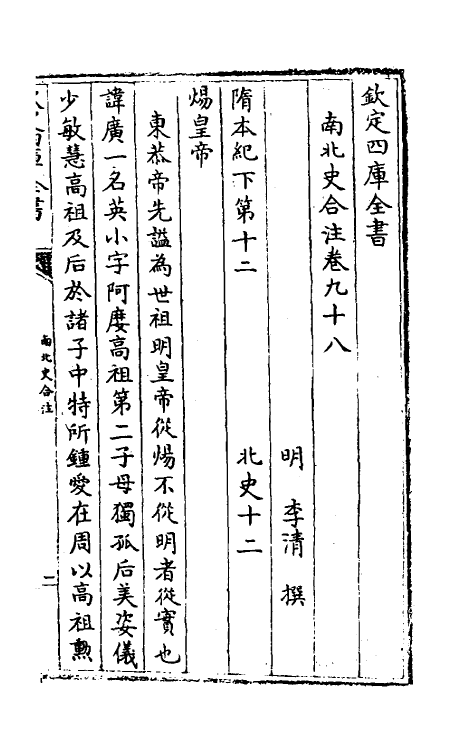 欽定四庫全書
南北史合注卷九十八
明 李清 撰
隋本紀下第十二 北史十二
煬皇帝
東恭帝先謚為世祖明皇帝從煬不從明者從實也
諱廣一名英小字阿𡡉高祖第二子母獨孤后美姿儀
少敏慧高祖及后於諸子中特所鍾愛在周以高祖勲
南北史合注